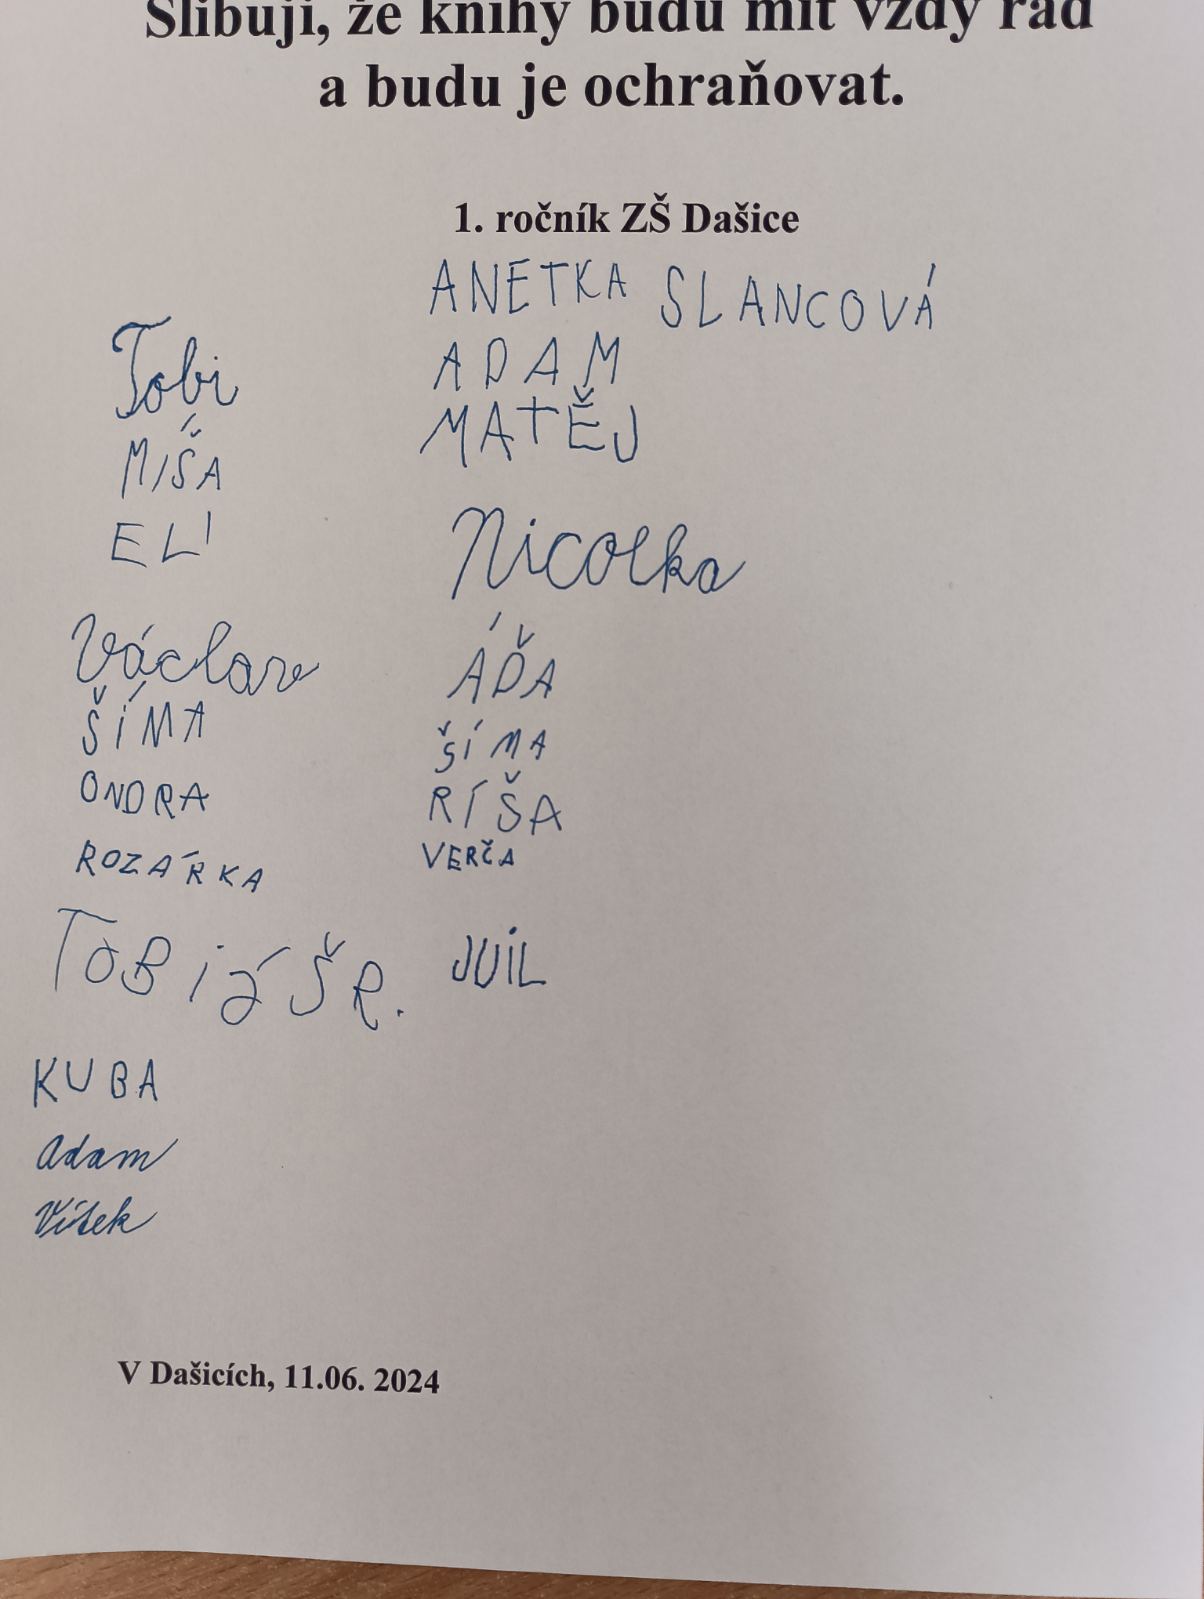 Slibuji, že knihy budu mít vždy rád
a budu je ochraňovat.
1. ročník ZŠ Dašice
ANETKA SLANCOVÁ
ADAM
MATĚJ
Nicolka
ÁĎA
ŠÍMA
RÍŠA
VERČA
JUIL
Tobi
MÍŠA
ELI
Václav
ŠÍMA
ONDRA
ROZÁRKA
TOBIÁŠ R.
KUBA
Adam
Vítek
V Dašicích, 11.06. 2024